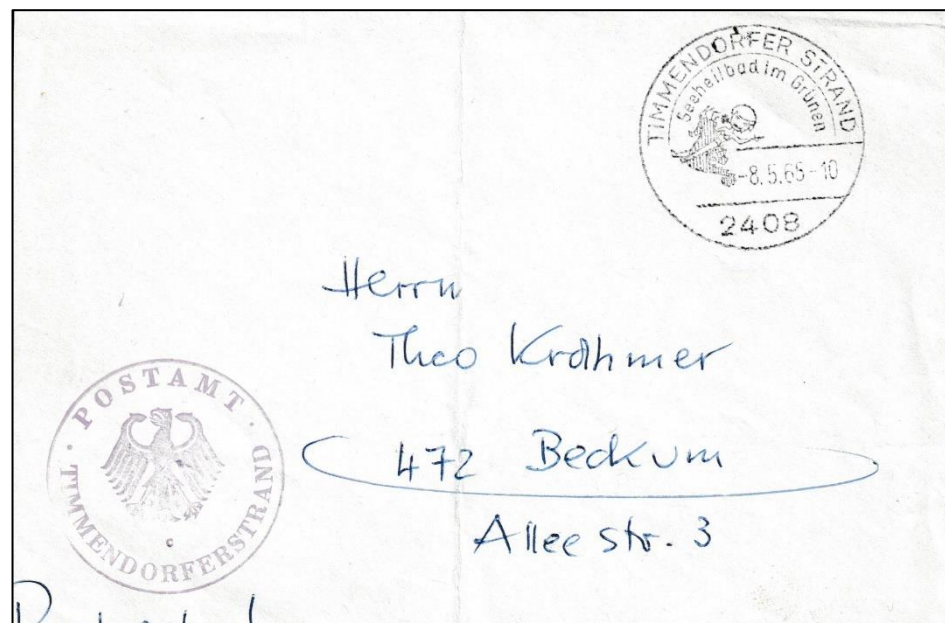 TIMMENDORFER STRAND
Seeheilbad im Grünen
-8.5.65-10
2408
Herrn
Theo Krahmer
472 Beckum
Alleestr. 3
· POSTAMT ·
TIMMENDORFERSTRAND
c